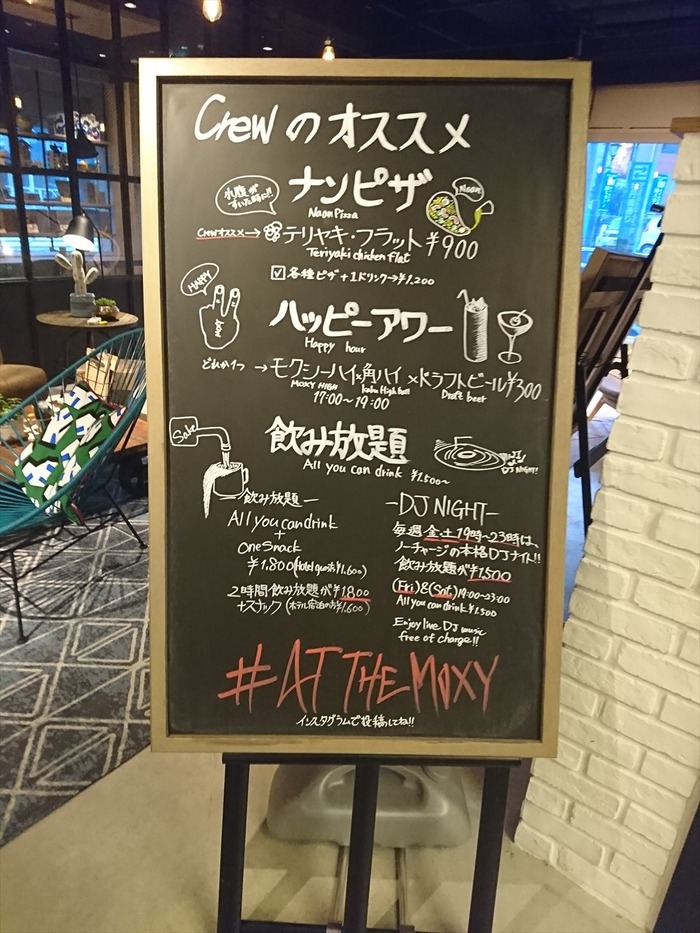 Crewのオススメ
小腹が
すいた時に!!
ナンピザ
Naan Pizza
Naan
Crewオススメ→
テリヤキ・フラット ¥900
Teriyaki chicken flat
☑各種ピザ+1ドリンク→¥1.200
HAPPY
ハッピーアワー
Happy hour
どれか1つ→モクシーハイ×角ハイ×ドラフトビール¥300
MOXY HIGH
Draft beer
17:00〜19:00
Sake
飲み放題
All you can drink ¥1.500〜
DJ NIGHT!
飲み放題ー
All you can drink
+
One Snack
¥1.800(Hotel guest¥1.600)
2時間飲み放題が¥1.800
+スナック(ホテル宿泊の方¥1.600)
-DJ NIGHT-
毎週金・土19時〜23時は、
ノーチャージの本格DJナイト!!
飲み放題が¥1500
(Fri)&(Sat)19:00〜23:00
All you can drink ¥1.500
Enjoy live DJ music
free of charge!!
#AT THE MOXY
インスタグラムで投稿してね!!